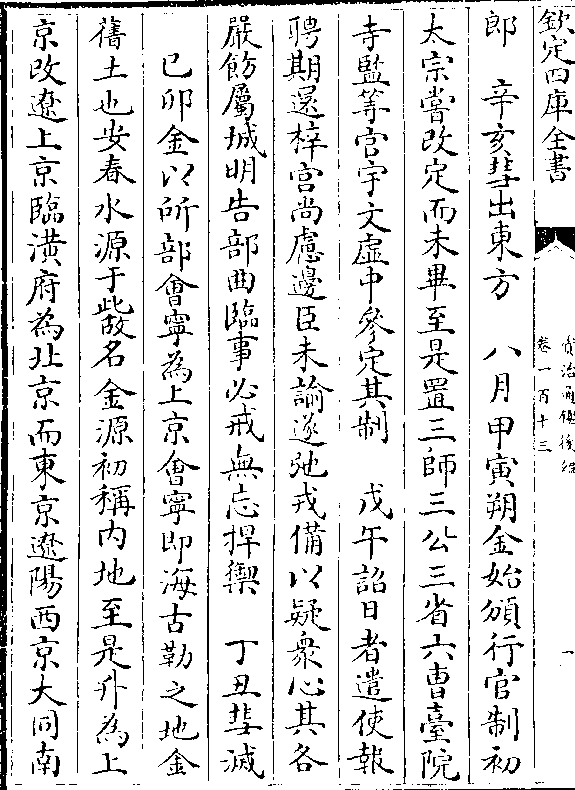 欽定四庫全書
資治通鑑後編
卷一百十三
一
郎　辛亥彗出東方　八月甲寅朔金始頒行官制初
太宗嘗改定而未畢至是置三師三公三省六曹臺院
寺監等官宇文虛中參定其制　戊午詔日者遣使報
聘期還梓宮尚慮邊臣未諭遂弛戎備以疑衆心其各
嚴飭屬城明告部曲臨事必戒無忘捍禦　丁丑彗滅
己卯金以所部會寧為上京會寧即海古勒之地金
舊土也安春水源于此故名金源初稱内地至是升為上
京改遼上京臨潢府為北京而東京遼陽西京大同南